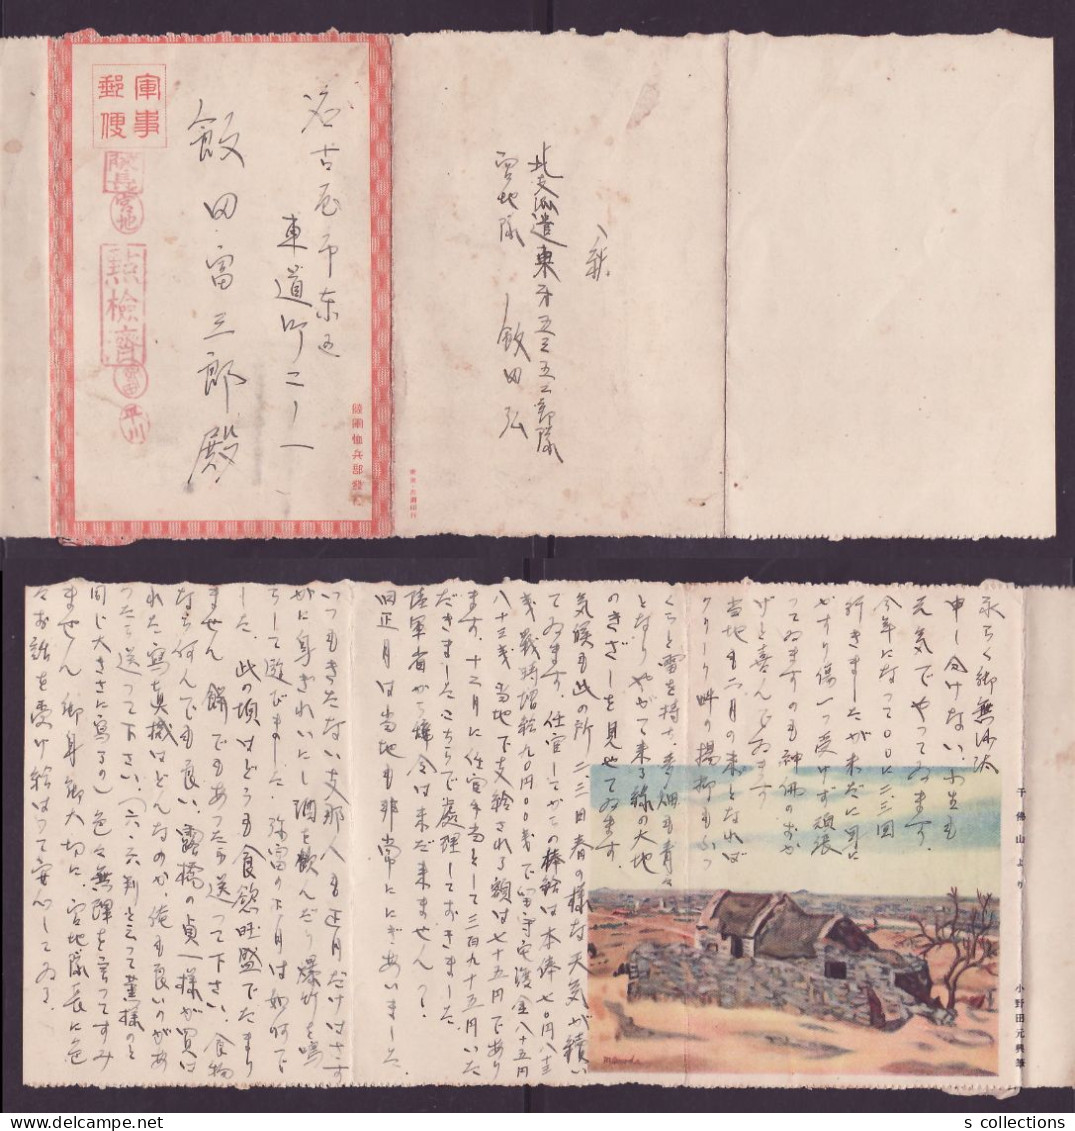 軍事
郵便
隊長
宮地
點檢濟
平川
名古屋市東区
東道町二ノ一
飯田富三郎殿
陸軍恤兵部發行
北支派遣東第五三五二部隊
宮地隊
飯田弘
永らく御無沙汰
申し分けない、小生も
元気でやってゐます。
今年になって〇〇に二三回
行きましたが未だに耳に
かすり傷一つ受けず頑張
ってゐますのも神佛のお
げと喜んでゐます
当地も二月の末となれば
クリーク畔の楊柳もふっ
くらと雪を持ち、麦畑も青々
となりやがて来る緑の大地
のきざしを見せてゐます
気候も此の所二、三日春の様な天気が續い
てゐます。任官してからの俸給は本俸七〇円八三
銭戦時増給九〇円〇〇銭で留守宅渡金八十五円
八十三銭当地で支給される額は七十五円であり
ます。十二月に任官手当として三百九十五円いた
だきましたこちらで處理しておきました。
陸軍省から辞令は未だ来ませんか?
旧正月は当地も非常ににぎあいました
いつもきたない支那人も正月だけはさす
がに身ぎれいにし酒を飲んだり爆竹を鳴
らして遊びました。弥富の正月は如何で
した。此の頃はどうも食慾旺盛でたまり
ません 餅でもあったら送って下さい。食物
なら何んでも良い。露橋の貞一様が買は
れた寫真機はどんなのか、俺も良いのがあ
ったら送って下さい。(六、六判と云って葉様のと
同じ大きさに寫るの)色々無理を言ってすみ
ません 御身御大切に、宮地隊長に色
々お話を受け給はって安心してゐる
千佛山より
小野田元興筆
s collections